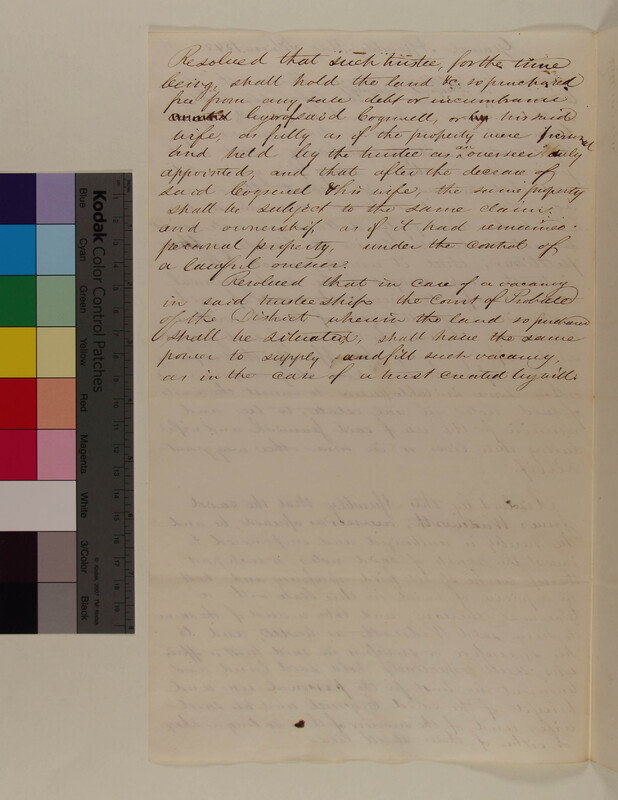 Resolved that such trustee, for the time
being, shall hold the land &c. so purchased
free from any sale debt or incumbrance
by or of said Cogswell, or by his said
wife, as fully as if the property were personal
and held by the trustee as an overseer duly
appointed, and that after the decease of
said Cogswell & his wife, the same property
shall be subject to the same claims
and ownership as if it had remained
personal property, under the control of
a lawful overseer.
Resolved that in case of a vacancy
in said trusteeship the Court of Probate
of the District wherein the land so purchased
shall be situated, shall have the same
power to supply and fill such vacancy,
as in the case of a trust created by will.
Kodak Color Control Patches
Blue
Cyan
Green
Yellow
Red
Magenta
White
3/Color
Black